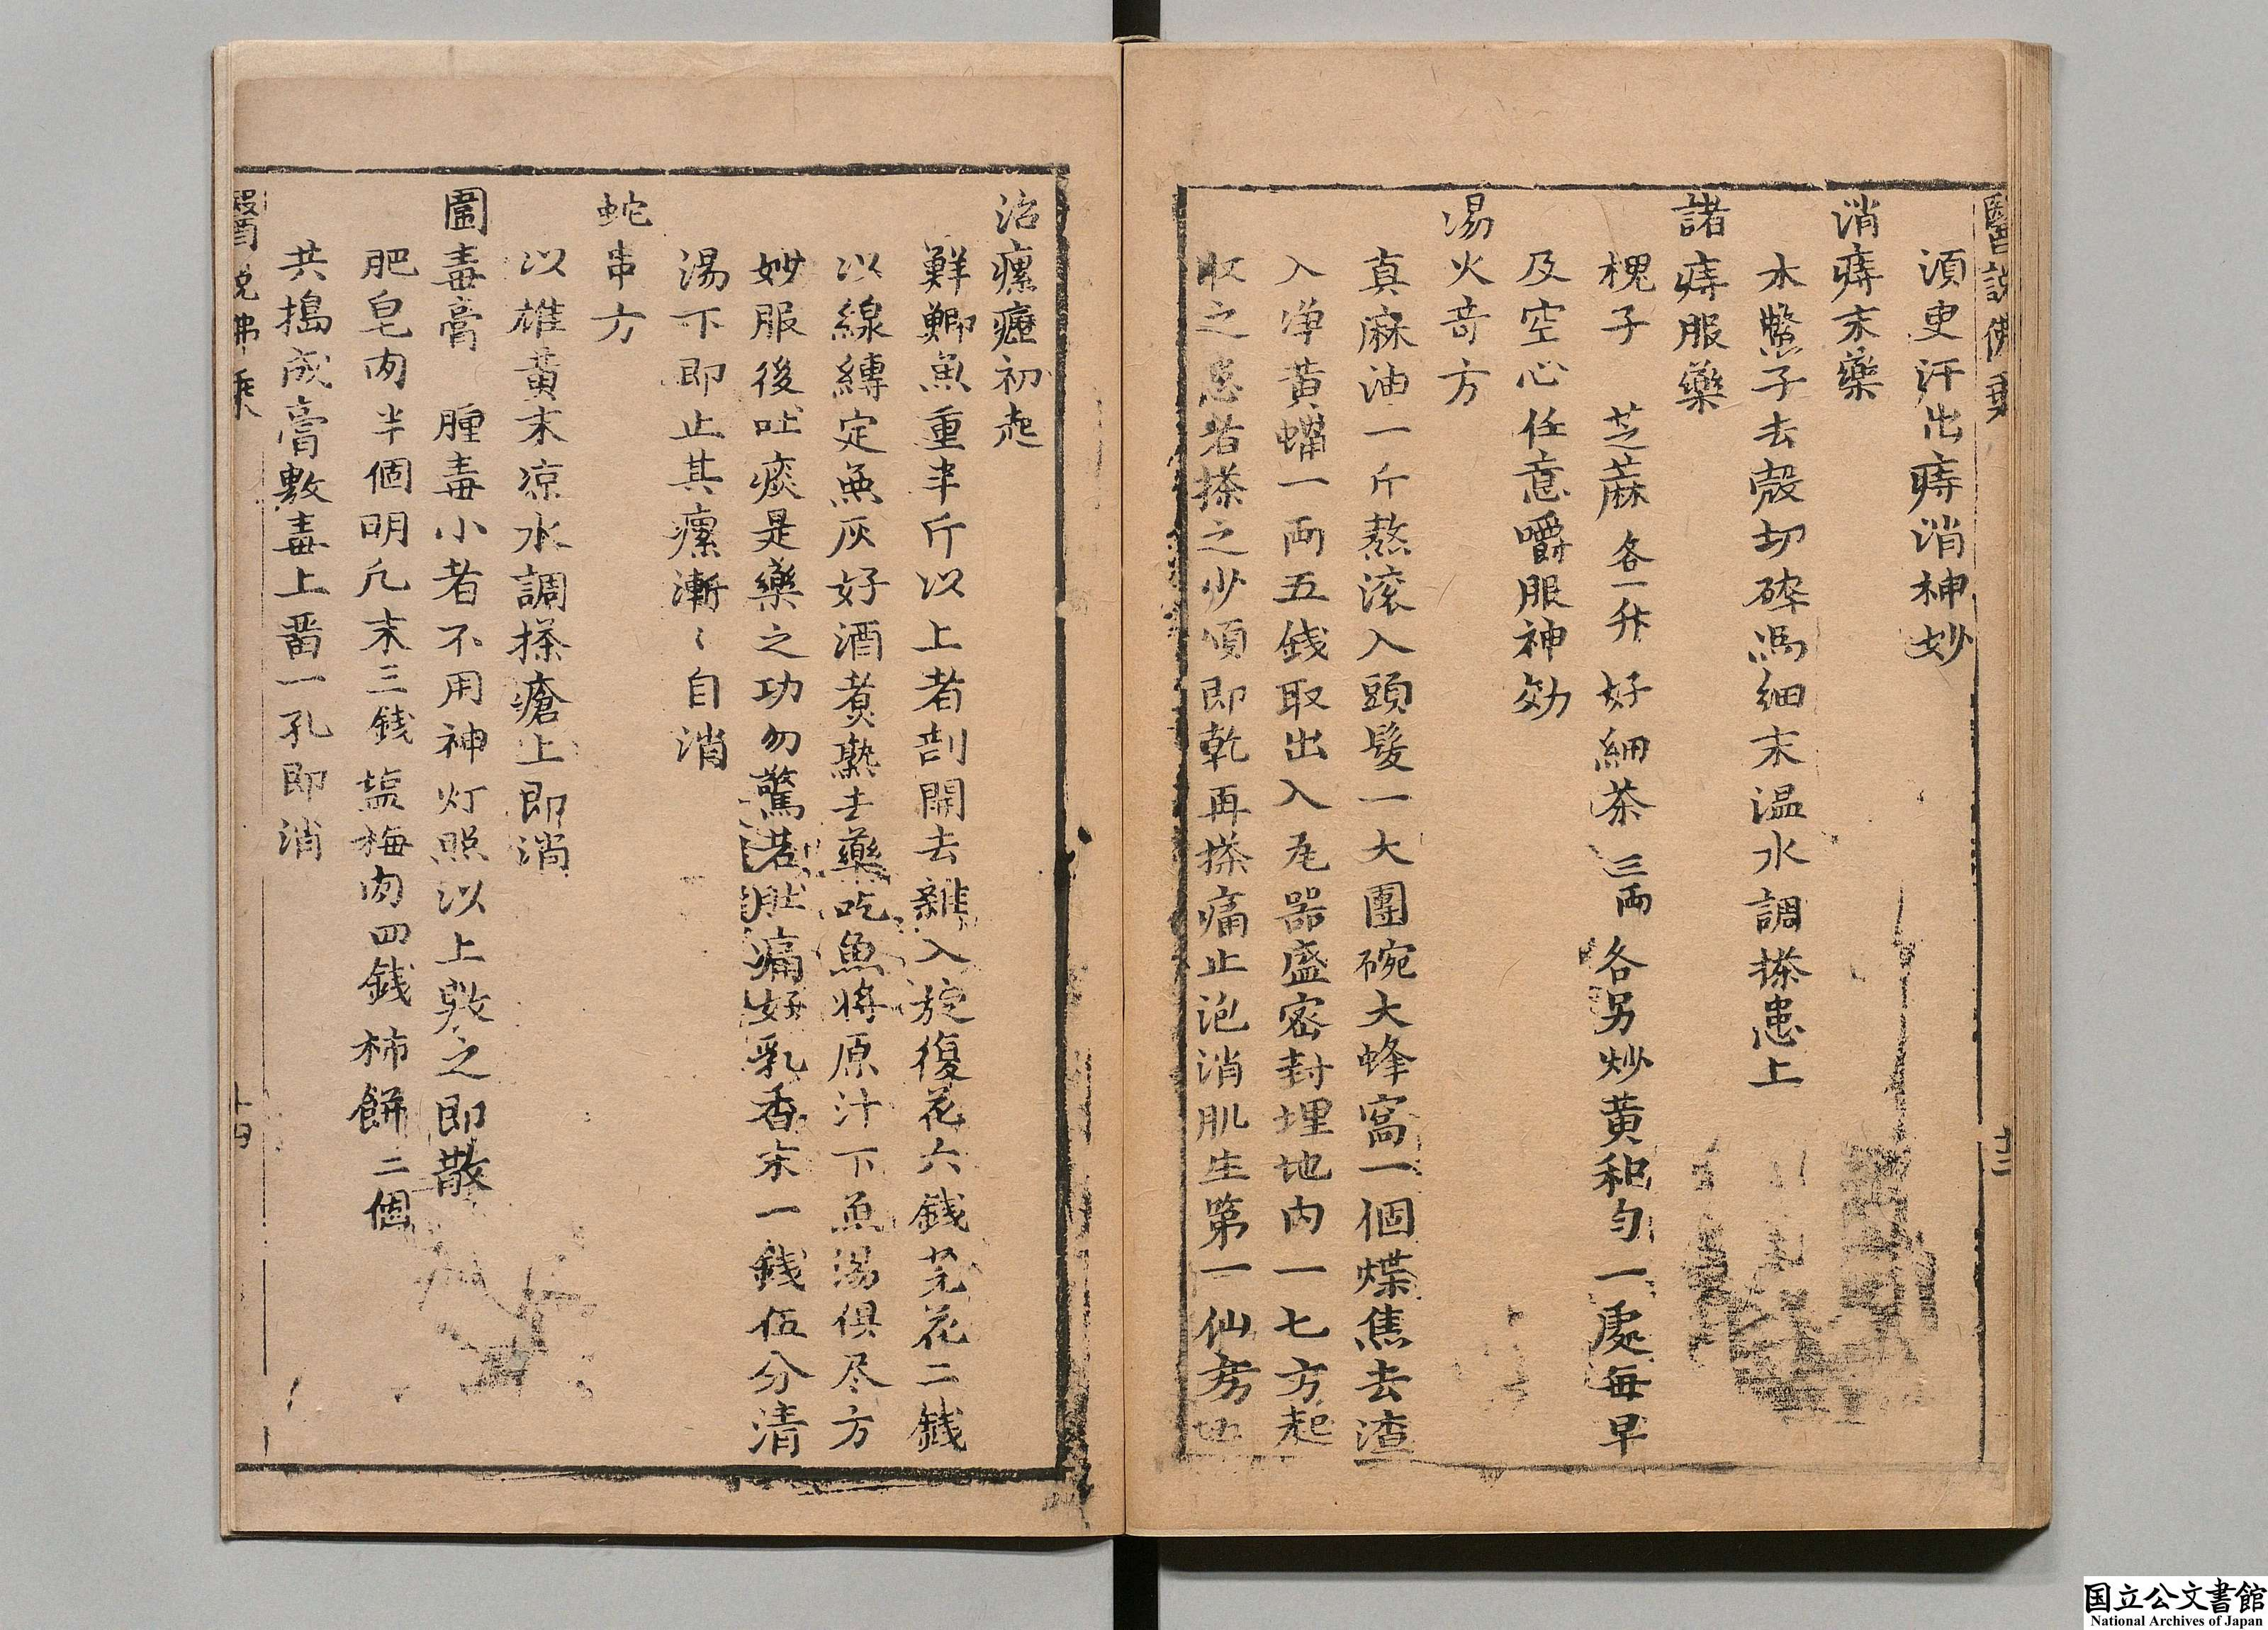 醫說佛乗
須叟汗出痔消神妙
消痔末藥
木鱉子去殼切碎為細末温水調搽患上
諸痔服藥
槐子 芝蔴各一升 好細茶三兩 各另炒黄和勻一處每早
及空心任意嚼服神効
湯火竒方
真麻油一斤熬滚入頭髮一大團碗大蜂窩一個煠焦去渣
入净黄蠟一両五錢取出入瓦器盛密封埋地内一七方起
収之患若搽之少頃即乾再搽痛止泡消肌生第一仙方也
治瘰癧初起
鮮鯽魚重半斤以上者剖開去雜入旋復花六錢芫花二錢
以線縳定魚灰好酒煮熟去藥吃魚將原汁下魚湯俱尽方
妙服後吐痰是藥之功勿驚若肚痛好乳香末一錢伍分清
湯下即止其瘰漸〻自消
蛇串方
以雄黄末凉水調搽瘡上即消
圍毒膏 腫毒小者不用神灯照以上敷之即散
肥皂肉半個明凡末三錢塩梅肉四錢柿餅二個
共搗成膏敷毒上畱一孔即消
醫說佛乗
十四
国立公文書館
National Archives of Japan